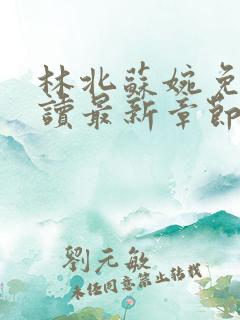 林北蘇婉免
讀最新章節
劉元敏
未經同意禁止轉載